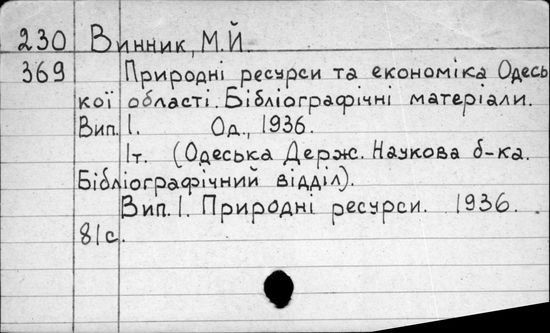 230 Винник, М.Й.
369 Природні ресурси та економіка Одесь
кої області. Бібліографічні матеріали.
Вип. 1. Од., 1936.
1т. (Одеська Держ. Наукова б-ка.
Бібліографічний відділ).
Вип. 1. Природні ресурси. 1936.
81с.